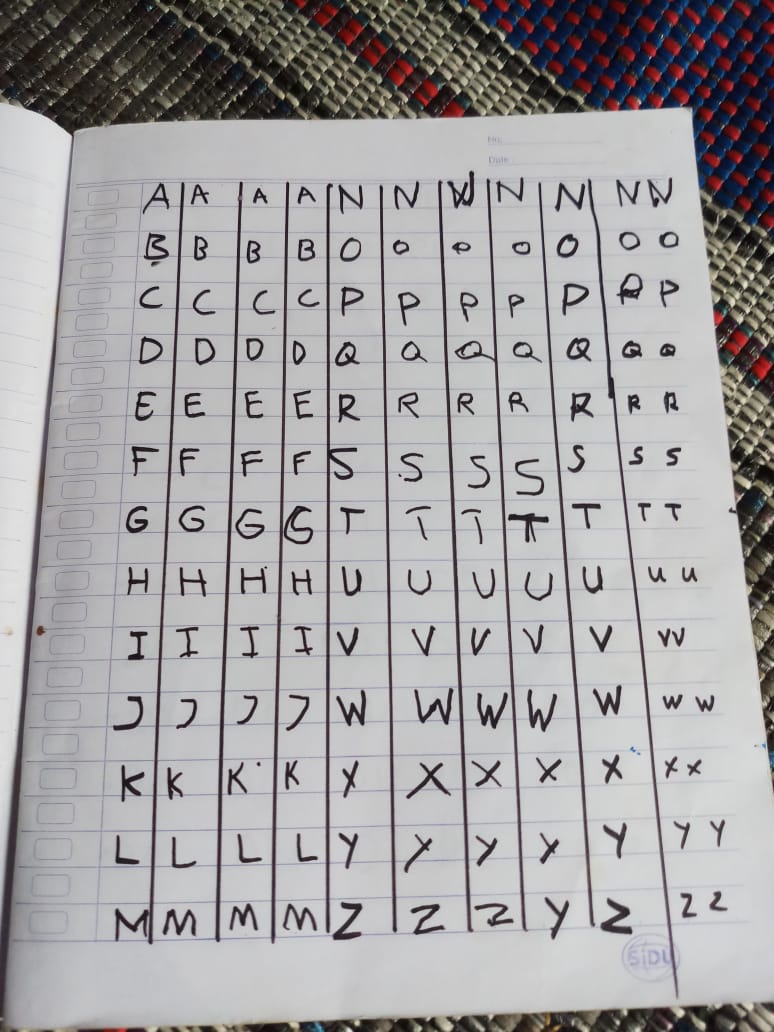 No:
Date:
A A A A N N W N N N N
B B B B O O O O O O O
C C C C P P P P P P P
D D D D Q Q Q Q Q Q Q
E E E E R R R R R R R
F F F F S S S S S S S
G G G G T T T T T T T
H H H H U U U U U U U
I I I I V V V V V V V
J J J J W W W W W W W
K K K K X X X X X X X
L L L L Y Y Y Y Y Y Y
M M M M Z Z Z Y Z Z Z
SiDU